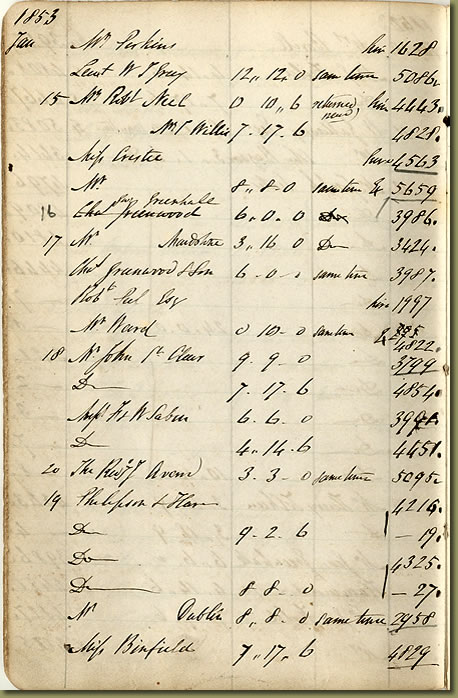 1853
Jan Mr Perkins hire 1628
Lieut W S Gray 12,, 12,, 0 same time 5086.
15 Mr Robt Neel 0 10,, 6 returned hire 4443.
Mr T Willis 7. 17. 6 4828.
Miss 4563
Mr 8,, 8. 0 same time & 5659
Jas Greenhall
16 Chas Greenwood 6,, 0. 0 Do 3986.
17 Mr Maidstone 3,, 16 0 Do 3424.
Chas Greenwood & Son 6 . 0 . 0 same time 3987.
Robt Peel Esq hire 1997
Mr Ward 0 10 . 0 same time & 295
4822.
18 Mr John St Clair 9 . 9 . 0 3799
Do 7. 17. 6 4854.
6. 6. 0
Do 4. 14. 6 4451.
20 The Revd J 3. 3. 0 same time 5095.
19 4216.
Do 9 . 2 . 6 — 19.
Do 4325.
Do 8 8 . 0 — 27.
Mr Dublin 8,, 8. 0 same time 2958
Miss Binfield 7,, 17,, 6 4829